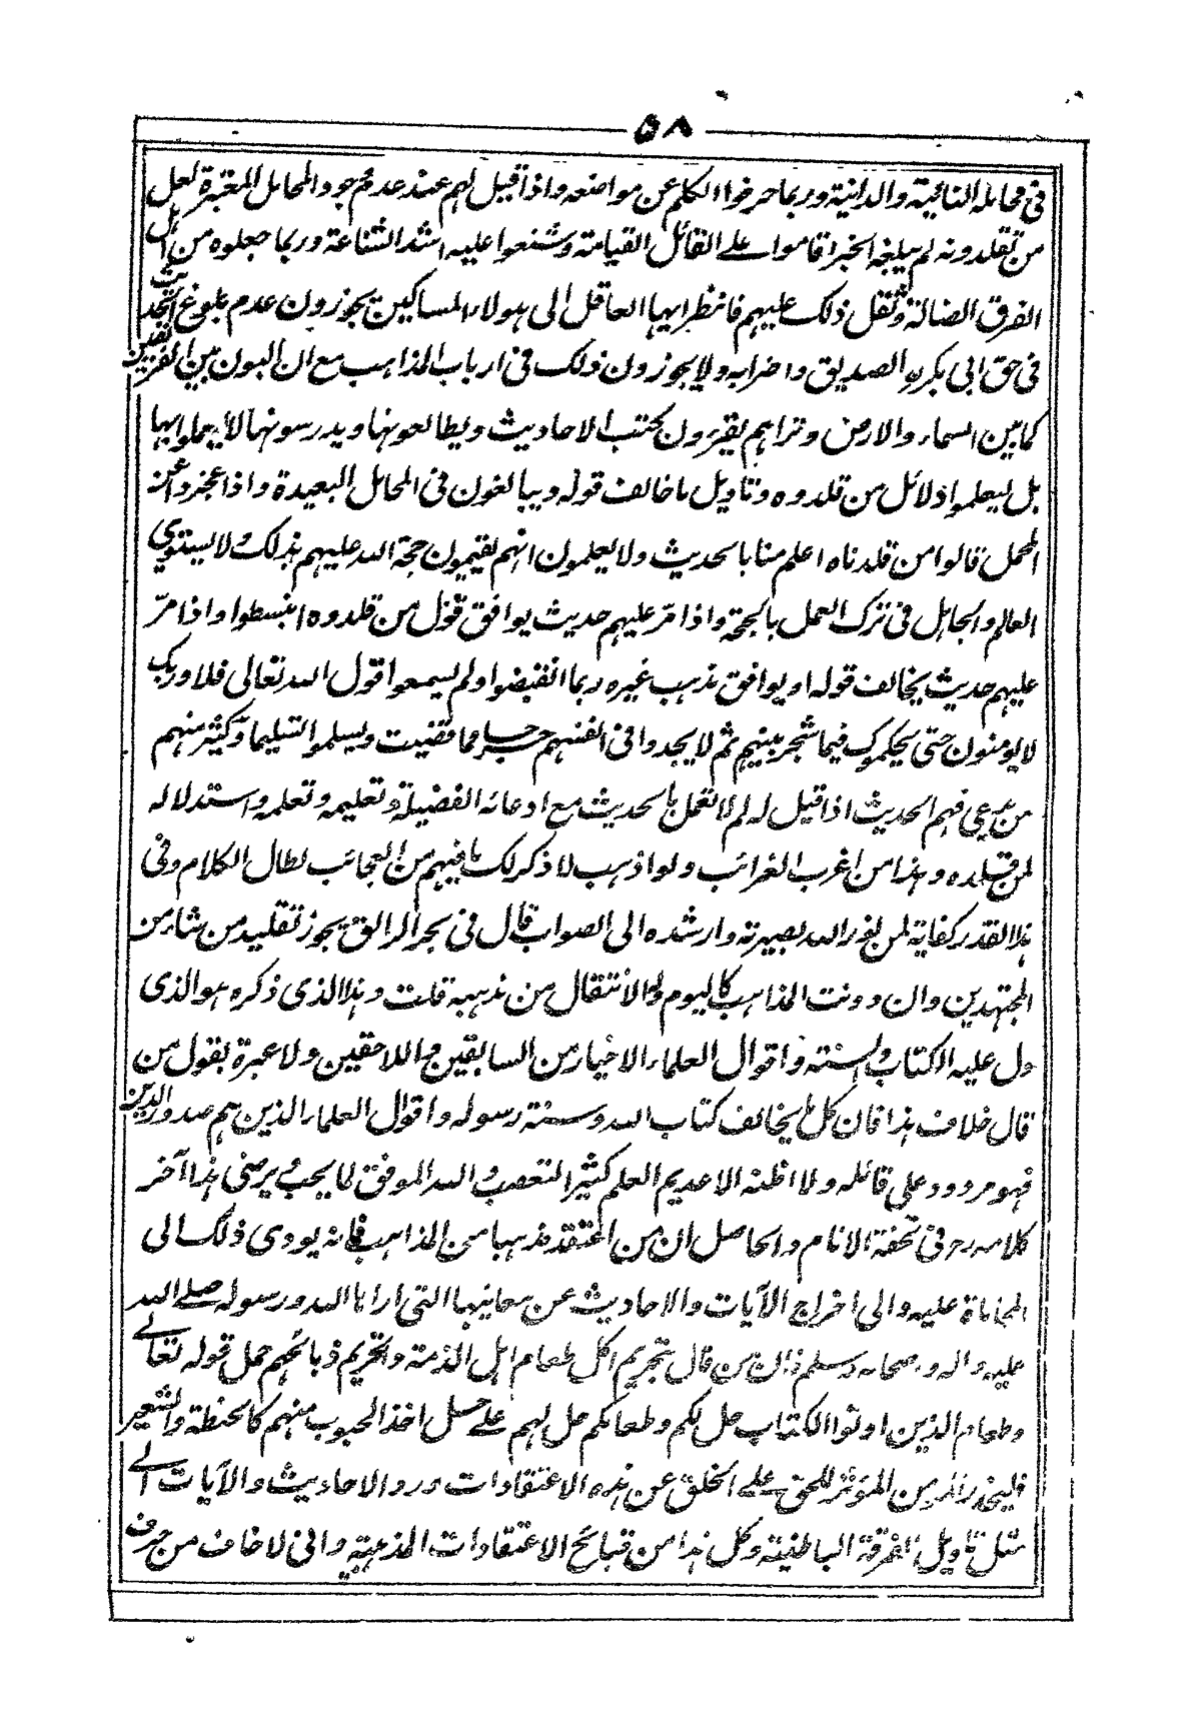 ٥٨
في محامله النائية والدانية وربما حرفوا الكلم عن مواضعه واذا قيل لهم عند عدم وجود المحامل المعتبرة لعل
من تقلدونه لم يبلغه الخبر اقاموا على القائل القيامة وشنعوا عليه اشد الشناعة وربما جعلوه من اهل
الفرق الضالة وثقل ذلك عليهم فانظر ايها العاقل الى هولاء المساكين يجوزون عدم بلوغ الحديث
في حق ابي بكر الصديق واضرابه ولا يجوزون ذلك في ارباب المذاهب مع ان البون بين الفريقين
كما بين السماء والارض وتراهم يقرؤن كتب الاحاديث ويطالعونها ويدرسونها لا ليعملوا بها
بل ليعلموا دلائل من قلدوه وتاويل ما خالف قوله ويبالغون في المحامل البعيدة واذا عجزوا عن
المحمل قالوا من قلدناه اعلم منا بالحديث ولا يعلمون انهم يقيمون حجة الله عليهم بذلك لا يستوي
العالم والجاهل في ترك العمل بالحجة واذا مرّ عليهم حديث يوافق قول من قلدوه انبسطوا واذا مرّ
عليهم حديث يخالف قوله او يوافق مذهب غيره ربما انقبضوا ولم يسمعوا قول الله تعالى فلا وربك
لا يومنون حتى يحكموك فيما شجر بينهم ثم لا يجدوا في انفسهم حرجا مما قضيت ويسلموا تسليما وكثير منهم
من يدعي فهم الحديث اذا قيل له لم لا تعمل بالحديث مع ادعائه الفضيلة وتعليمه وتعلمه واستدلاله
لمن قلده وهذا من اغرب الغرائب ولو اذهب لاذكر لك ما فيهم من العجائب لطال الكلام وفي
هذا القدر كفاية لمن نور الله بصيرته وارشده الى الصواب قال في بحر الرائق يجوز تقليد من شاء من
المجتهدين وان دونت المذاهب كاليوم وله الانتقال من مذهبه قلت وهذا الذي ذكره هو الذي
دل عليه الكتاب والسنة واقوال العلماء الاخيار من السابقين واللاحقين ولا عبرة بقول من
قال خلاف هذا فان كل ما يخالف كتاب الله وسنة رسوله واقوال العلماء الذين هم صدور الدين
فهو مردود على قائله ولا اظنه الا عديم العلم كثير التعصب والله الموفق لما يحب ويرضى هذا آخر
كلامه رح في تحفة الانام والحاصل ان من اعتقد مذهبا من المذاهب فانه يودي ذلك الى
المحاماة عليه والى اخراج الآيات والاحاديث عن معانيها التي ارادها الله ورسوله صلى الله
عليه واله وصحابه وسلم فان من قال بتحريم اكل طعام اهل الذمة وتحريم ذبائحهم حمل قوله تعالى
وطعام الذين اوتوا الكتاب حل لكم وطعامكم حل لهم على حل اخذ الحبوب منهم كالحنطة والشعير
فليحذر المومن المؤثر للحق على الخلق عن هذه الاعتقادات ورد الاحاديث والآيات الى
مثل تاويل الفرقة الباطنية وكل هذا من قبائح الاعتقادات المذهبية واني لاخاف من حرف